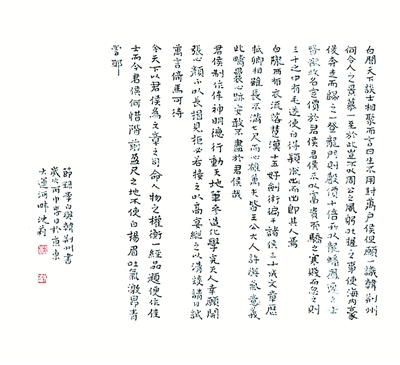 白聞天下談士相聚而言曰生不用封萬戶侯但願一識韓荊州
何令人之景慕一至於此豈不以周公之風躬吐握之事使海內豪
俊奔走而歸之一登龍門則聲價十倍所以龍蟠鳳逸之士
皆欲收名定價於君侯君侯不以富貴而驕之寒賤而忽之則
三千之中有毛遂使白得穎脫而出即其人焉
白隴西布衣流落楚漢十五好劍術遍干諸侯三十成文章歷
抵卿相雖長不滿七尺而心雄萬夫皆王公大人許與氣義
此疇曩心跡安敢不盡於君侯哉
君侯制作侔神明德行動天地筆參造化學究天人幸願開
張心顏不以長揖見拒必若接之以高宴縱之以清談請日試
萬言倚馬可待
今天下以君侯為文章之司命人物之權衡一經品題便作佳
士而今君侯何惜階前盈尺之地不使白揚眉吐氣激昂青
雲耶
節錄李白與韓荊州書
歲次丙申於京東
大運河畔沈莉